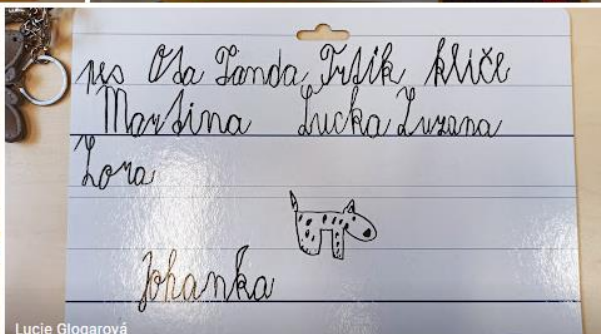 pes Ota Fanda Trtík klíče
Martina Lucka Zuzana
Zora
Johanka
Lucie Glogarová